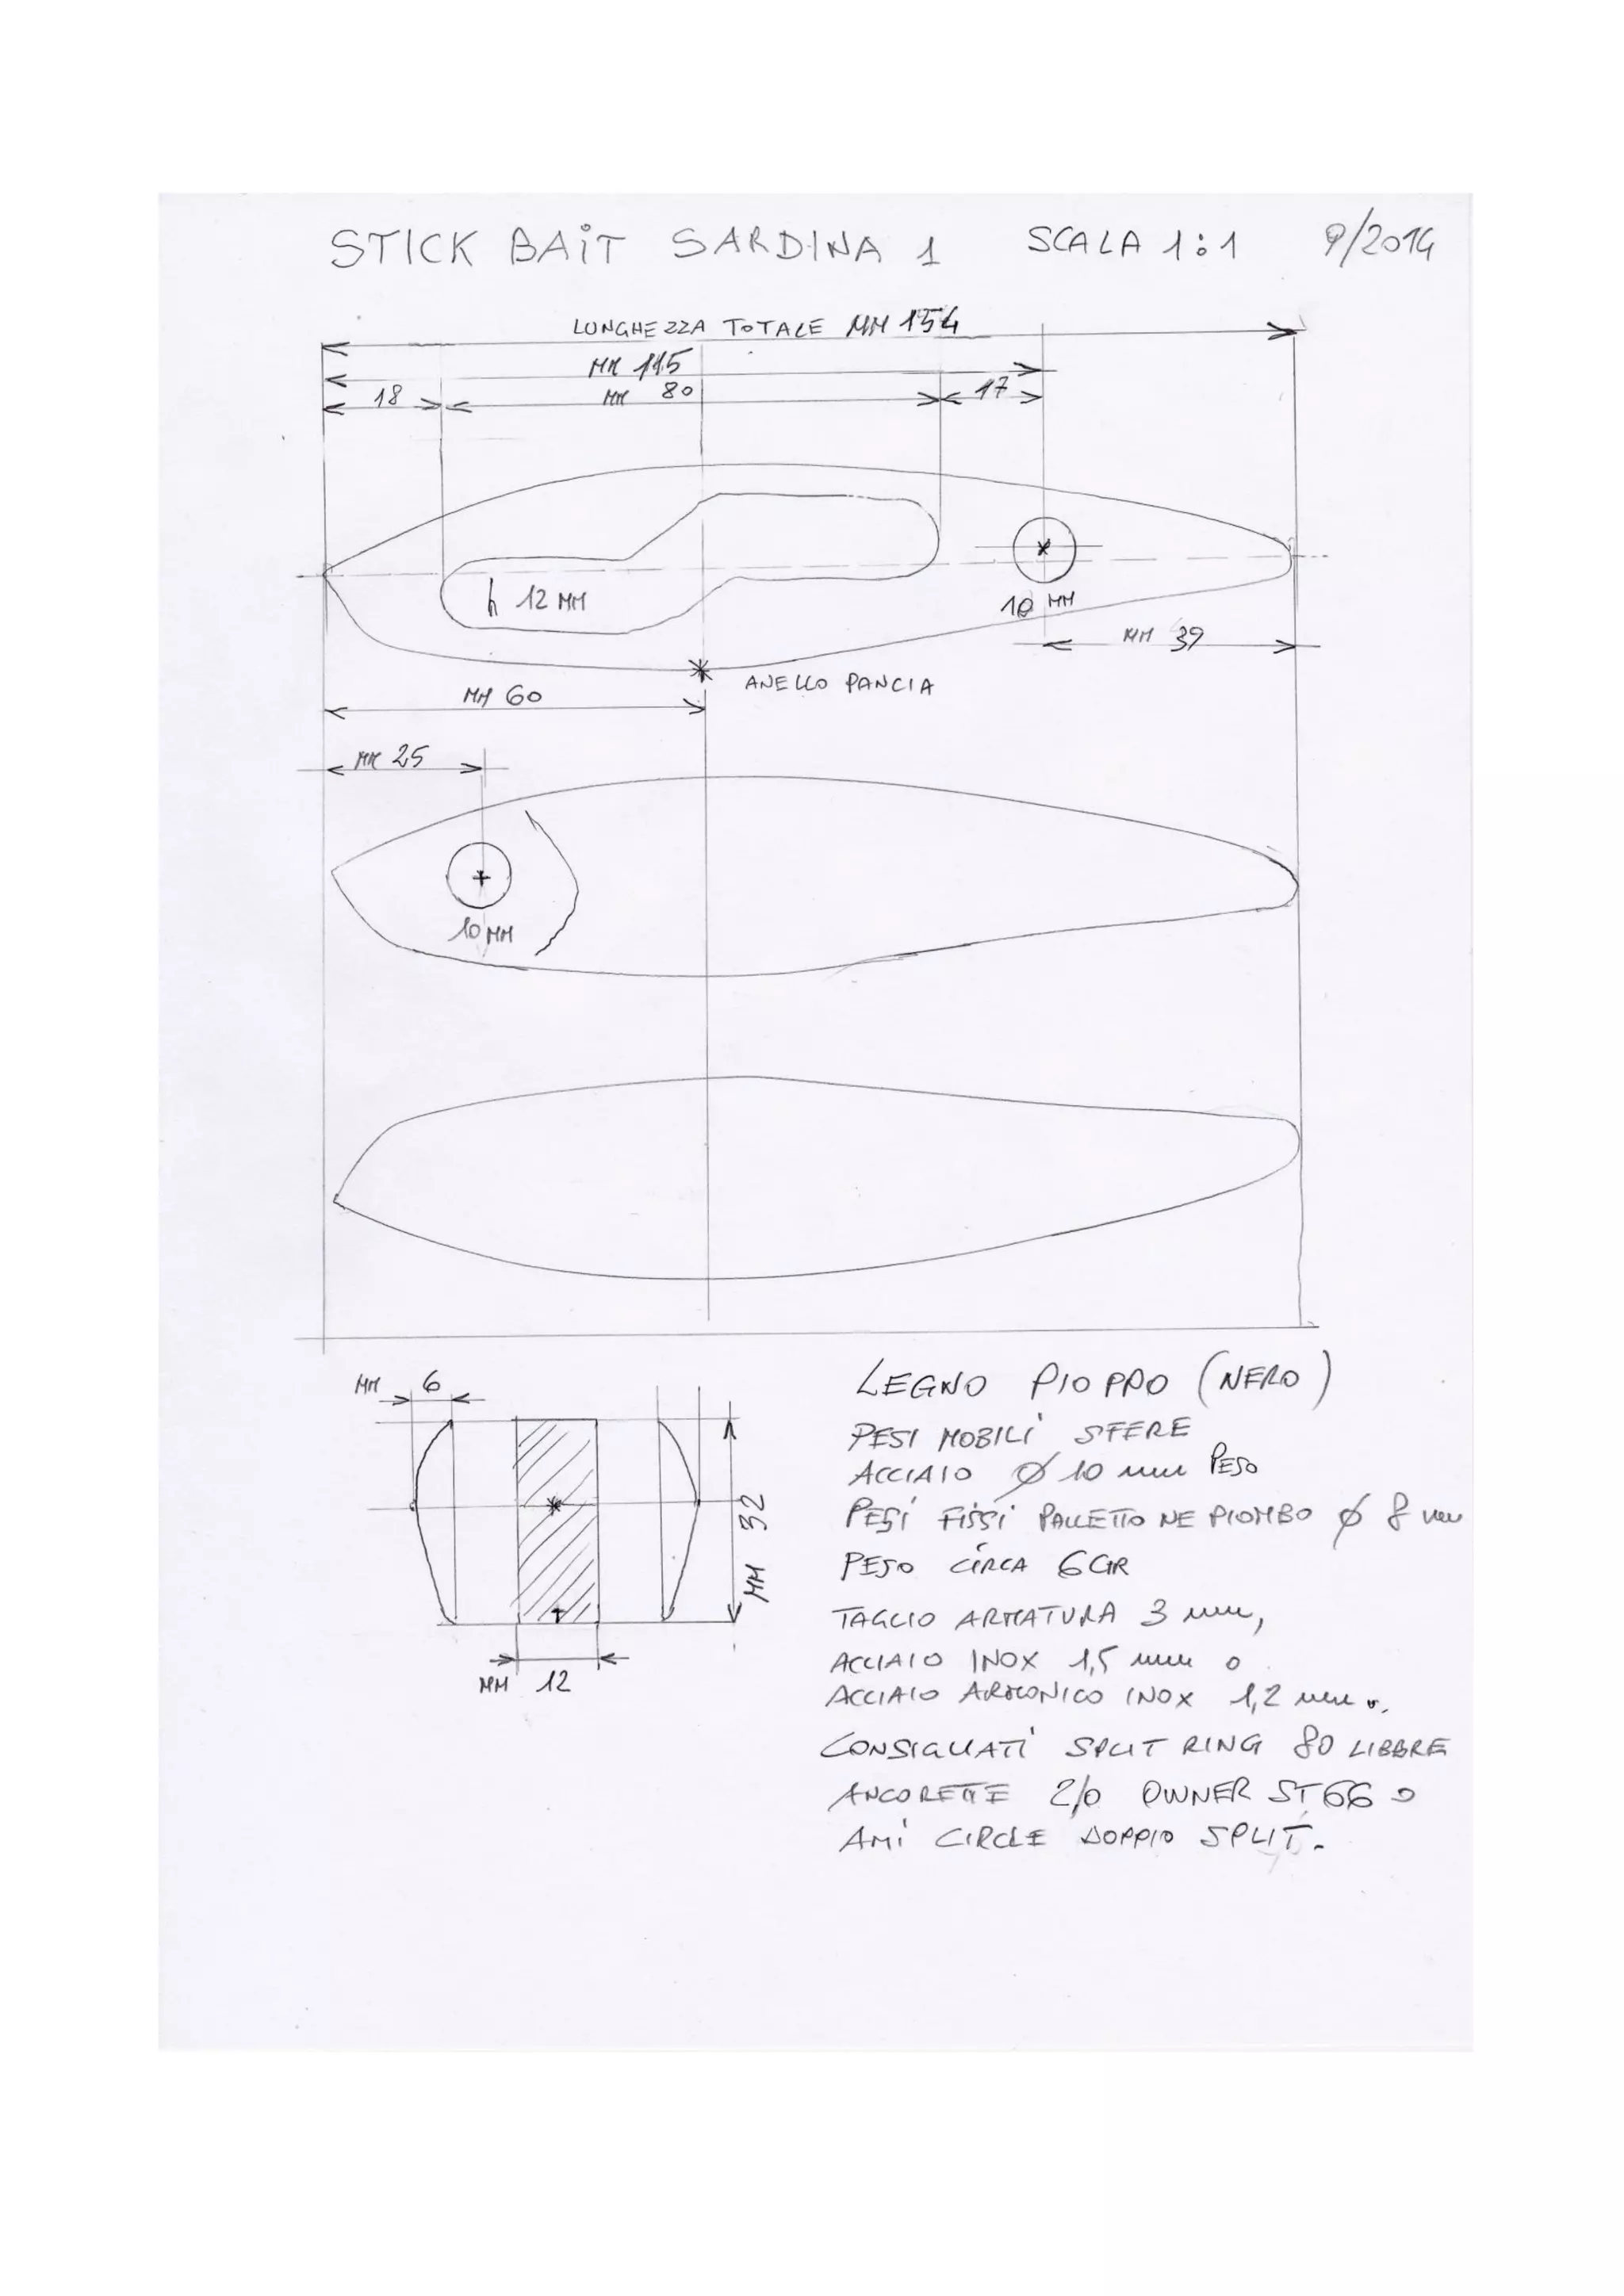 STICK BAIT SARDINA 1 SCALA 1:1 9/2014
LUNGHEZZA TOTALE MM 154
MM 115
18 MM 80 17
h 12 MM
10 MM
MM 39
ANELLO PANCIA
MM 60
MM 25
10 MM
MM 6
MM 32
MM 12
LEGNO PIOPPO (NERO)
PESI MOBILI SFERE
ACCIAIO Ø 10 mm PESO
PESI FISSI PALLETTONE PIOMBO Ø 8 mm
PESO CIRCA 6 GR
TAGLIO ARMATURA 3 mm,
ACCIAIO INOX 1,5 mm o
ACCIAIO ARMONICO INOX 1,2 mm
CONSIGLIATI SPLIT RING 80 LIBBRE
ANCORETTE 2/0 OWNER ST66 o
AMI CIRCLE DOPPIO SPLIT.